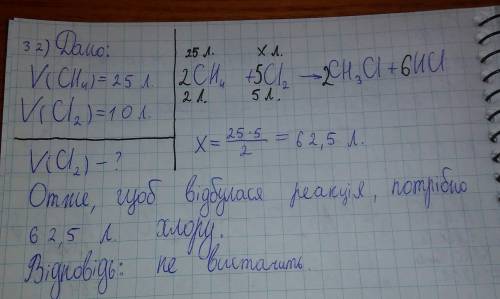 32) Дано:
V(CH₄) = 25 л.
V(Cl₂) = 10 л.
V(Cl₂) – ?
25 л. x л.
2CH₄ + 5Cl₂ → 2CH₃Cl + 6HCl
2 л. 5 л.
x = 25·5/2 = 62,5 л.
Отже, щоб відбулася реакція, потрібно
62,5 л. хлору.
Відповідь: не вистачить.